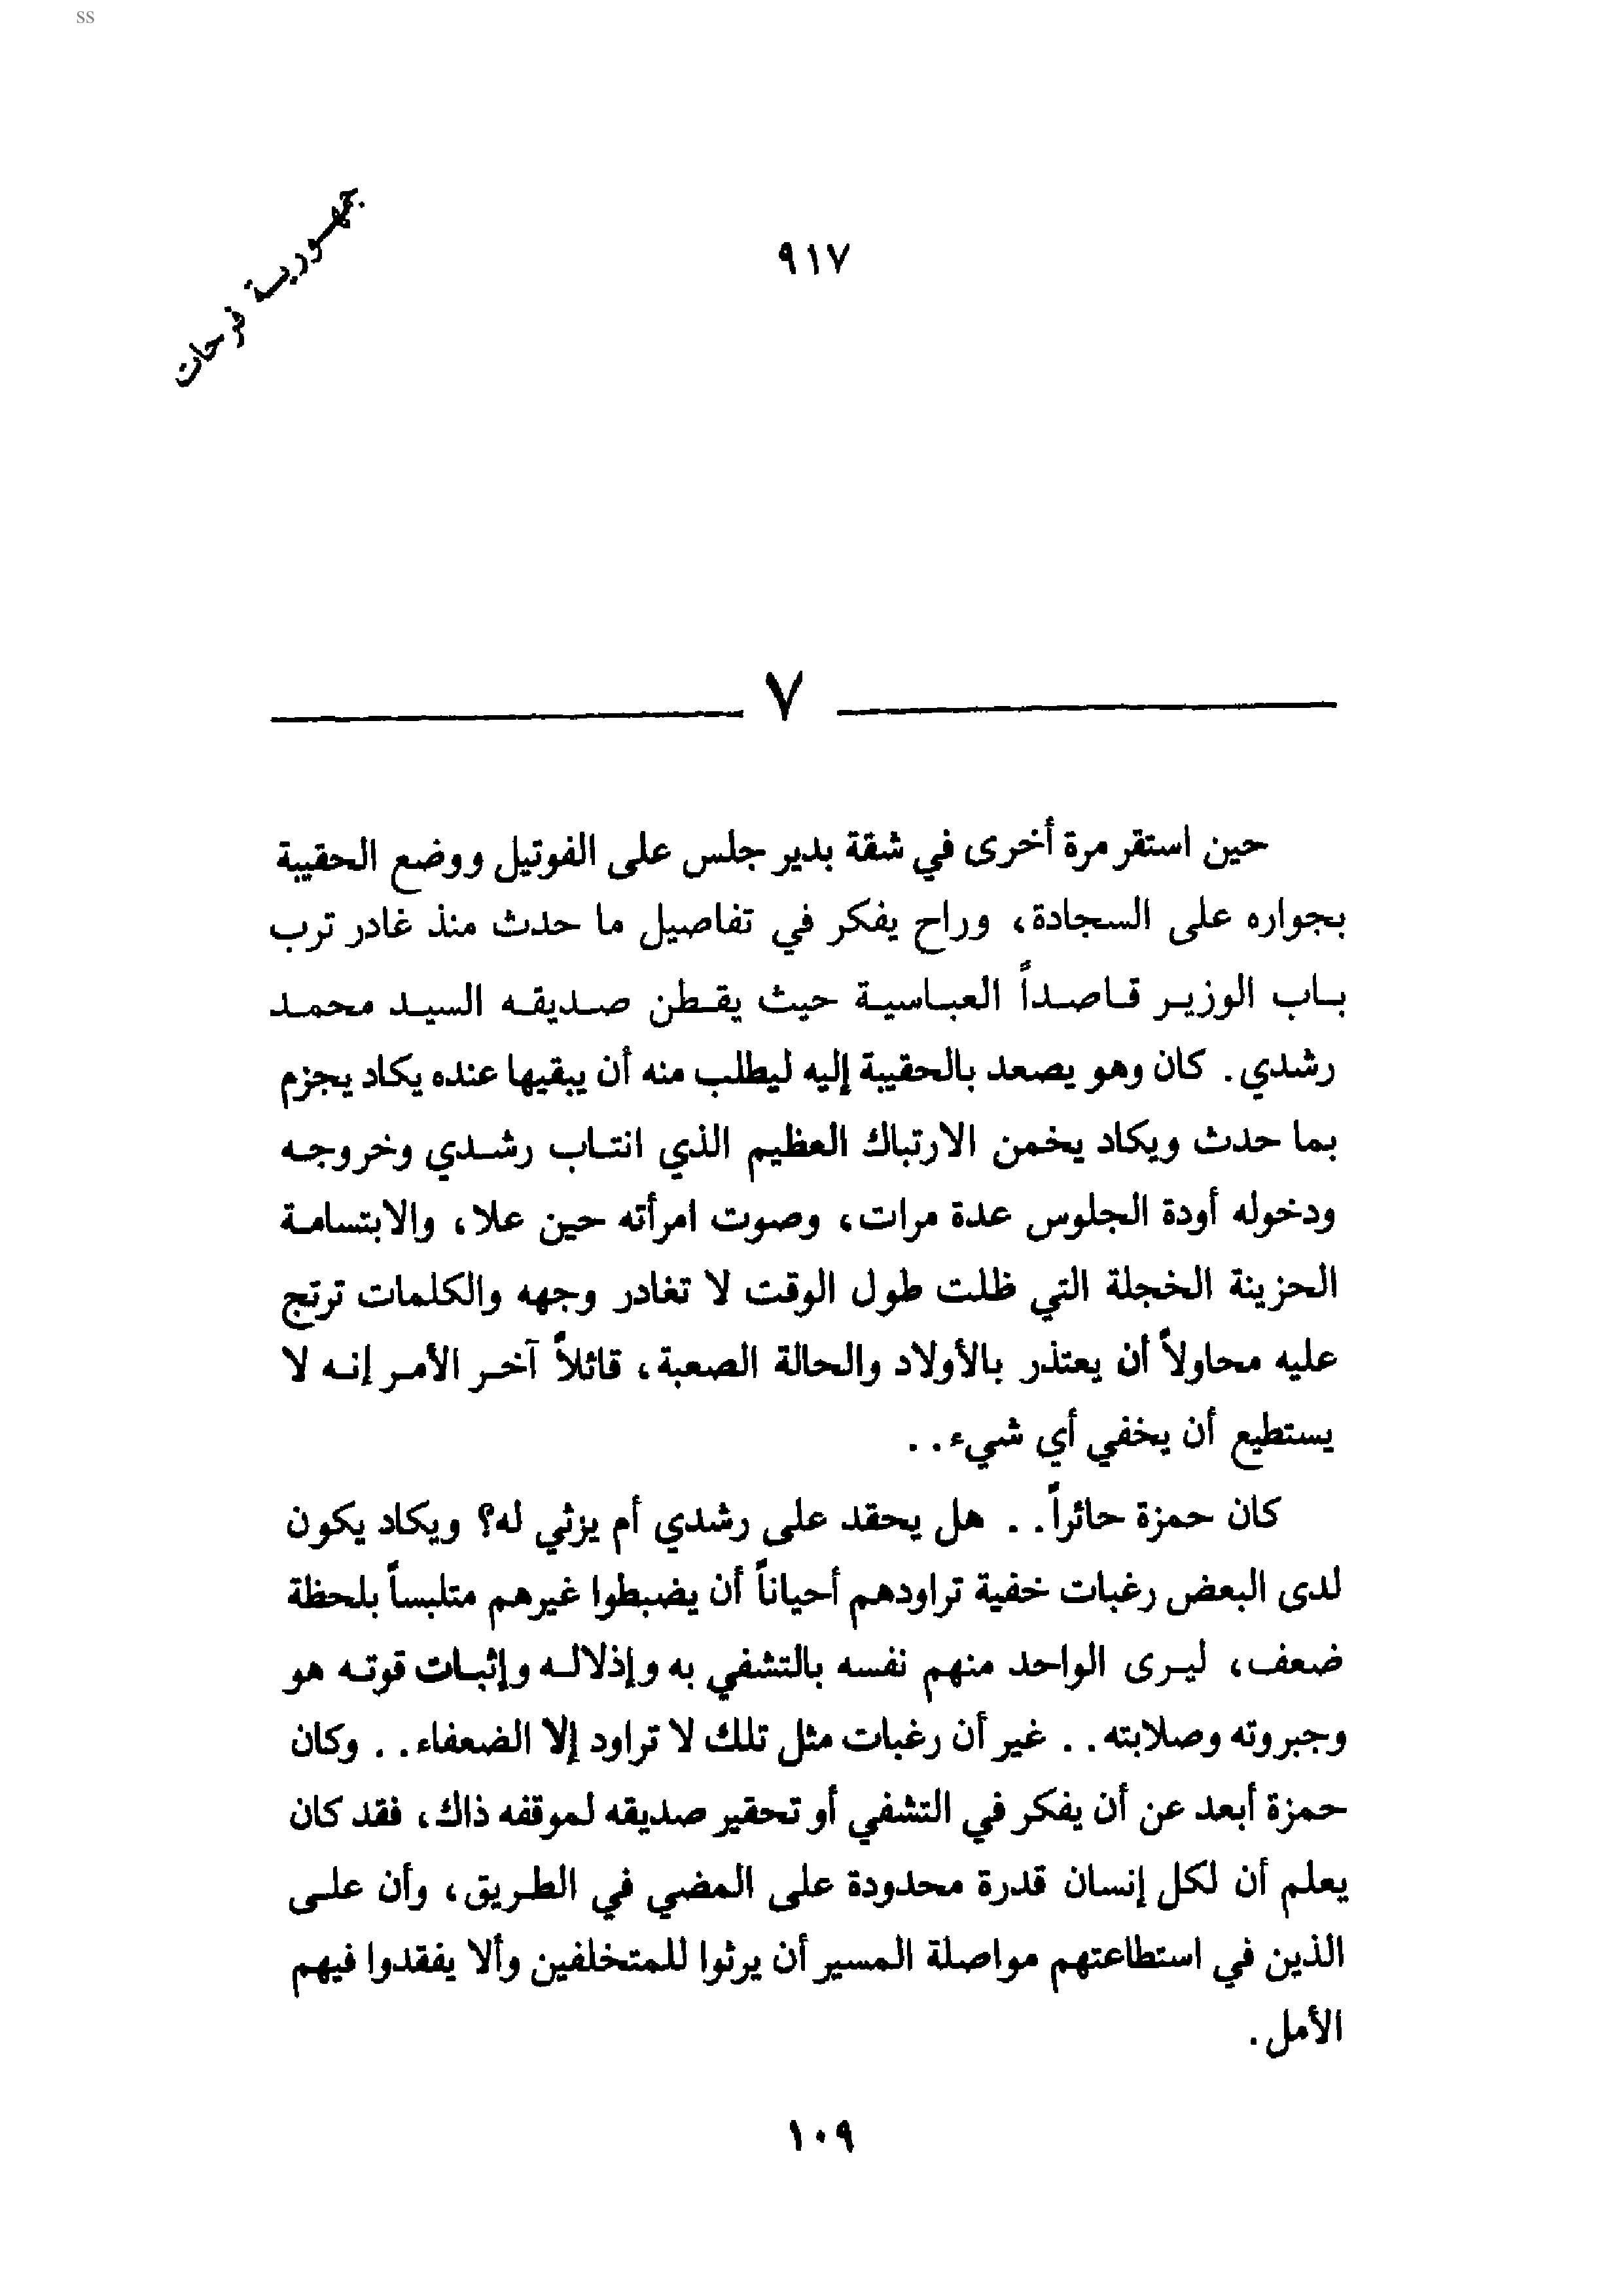 ss
جمهورية فرحات
٩١٧
٧
حين استقر مرة أخرى في شقة بدير جلس على الفوتيل ووضع الحقيبة
بجواره على السجادة، وراح يفكر في تفاصيل ما حدث منذ غادر ترب
باب الوزير قاصداً العباسية حيث يقطن صديقه السيد محمد
رشدي. كان وهو يصعد بالحقيبة إليه ليطلب منه أن يبقيها عنده يكاد يجزم
بما حدث ويكاد يخمن الارتباك العظيم الذي انتاب رشدي وخروجه
ودخوله أودة الجلوس عدة مرات، وصوت امرأته حين علا، والابتسامة
الحزينة الخجلة التي ظلت طول الوقت لا تغادر وجهه والكلمات ترتج
عليه محاولاً أن يعتذر بالأولاد والحالة الصعبة، قائلاً آخر الأمر إنه لا
يستطيع أن يخفي أي شيء..
كان حمزة حائراً.. هل يحقد على رشدي أم يزثي له؟ ويكاد يكون
لدى البعض رغبات خفية تراودهم أحياناً أن يضبطوا غيرهم متلبساً بلحظة
ضعف، ليرى الواحد منهم نفسه بالتشفي به وإذلاله وإثبات قوته هو
وجبروته وصلابته.. غير أن رغبات مثل تلك لا تراود إلا الضعفاء.. وكان
حمزة أبعد عن أن يفكر في التشفي أو تحقير صديقه لموقفه ذاك، فقد كان
يعلم أن لكل إنسان قدرة محدودة على المضي في الطريق، وأن على
الذين في استطاعتهم مواصلة المسير أن يرثوا للمتخلفين وألا يفقدوا فيهم
الأمل.
١٠٩